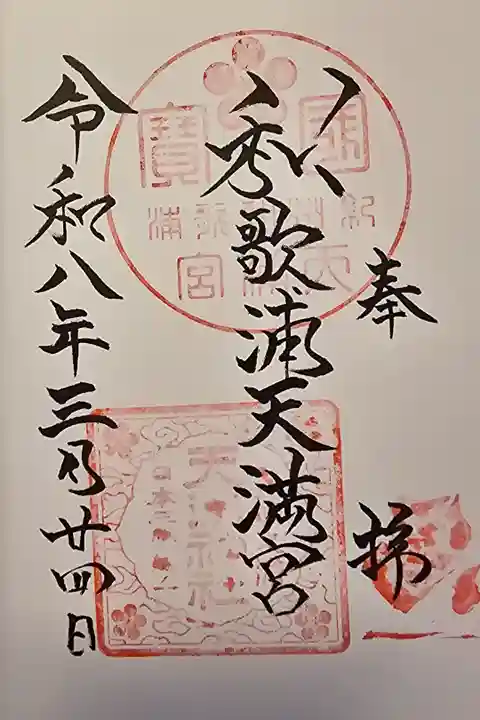 奉拝
和歌浦天満宮
令和八年三月廿四日
國寶
紀州和歌浦
天満宮
日本三菅廟之一